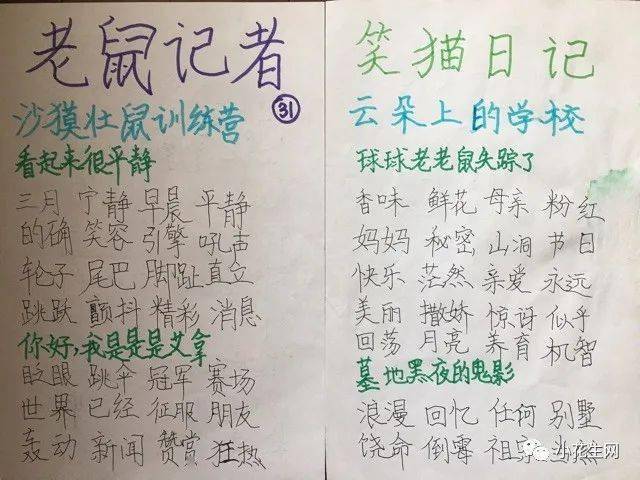 老鼠记者
31
沙漠壮鼠训练营
看起来很平静
三月 宁静 早晨 平静
的确 笑容 引擎 吼声
轮子 尾巴 脚趾 直立
跳跃 颤抖 精彩 消息
你好,我是是是艾拿
眨眼 跳伞 冠军 赛场
世界 已经 征服 朋友
轰动 新闻 赞赏 狂热
笑猫日记
云朵上的学校
球球老老鼠失踪了
香味 鲜花 母亲 粉红
妈妈 秘密 山洞 节日
快乐 茫然 亲爱 永远
美丽 撒娇 惊讶 似乎
回荡 月亮 养育 机智
墓地黑夜的鬼影
浪漫 回忆 任何 别墅
饶命 倒霉 祖
小花生网